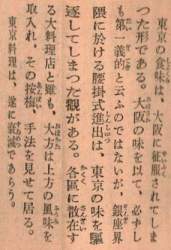 東京の食味は、大阪に征服されてしま
つた形である。大阪の味を以て、必ずし
も第一義的と云ふのではないが、銀座界
隈に於ける腰掛式進出は、東京の味を驅
逐してしまつた觀がある。各區に散在す
る大料理店と雖も、大方は上方の風味を
取入れ、その按梅、手法を見せて居る。
東京料理は、遂に衰滅であらう。